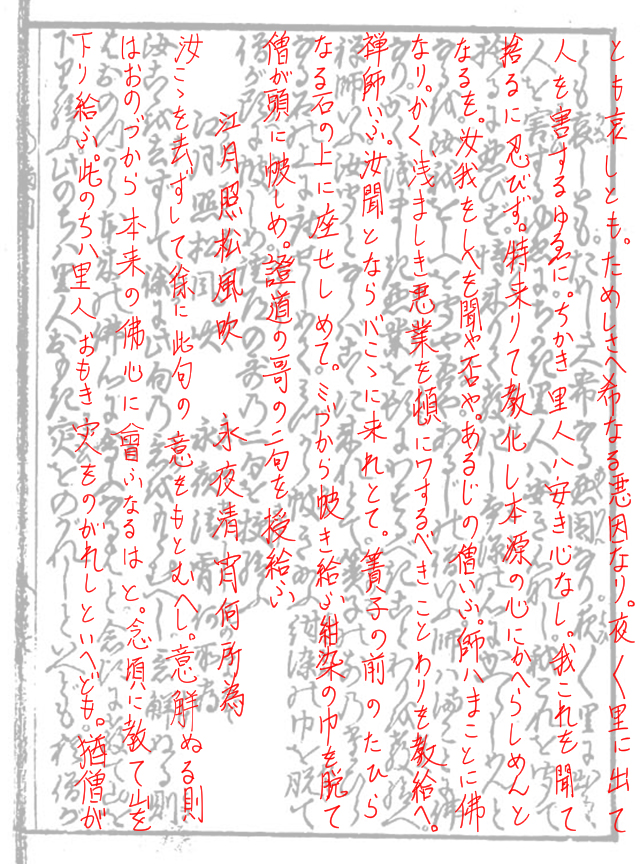 とも哀しとも。ためしさへ希なる悪因なり。夜〱里に出て
人を害するゆゑに。ちかき里人ハ安き心なし。我これを聞て
捨るに忍びず。特来りて教化し本源の心にかへらしめんと
なるを。汝我をしへを聞や否や。あるじの僧いふ。師ハまことに佛
なり。かく浅ましき悪業を頓にワするべきことわりを教給へ。
禅師いふ。汝聞とならバこゝに来れとて。簀子の前のたひら
なる石の上に座せしめて。ミづから帔き給ふ紺染の巾を脱て
僧が頭に帔しめ。證道の哥の二句を授給ふ
江月照松風吹 永夜清宵何所為
汝こゝを去ずして徐に此句の意をもとむへし。意解ぬる則
はおのづから本来の佛心に會ふなるはと。念頃に教て山を
下り給ふ。此のちハ里人おもき災をのがれしといへども。猶僧が